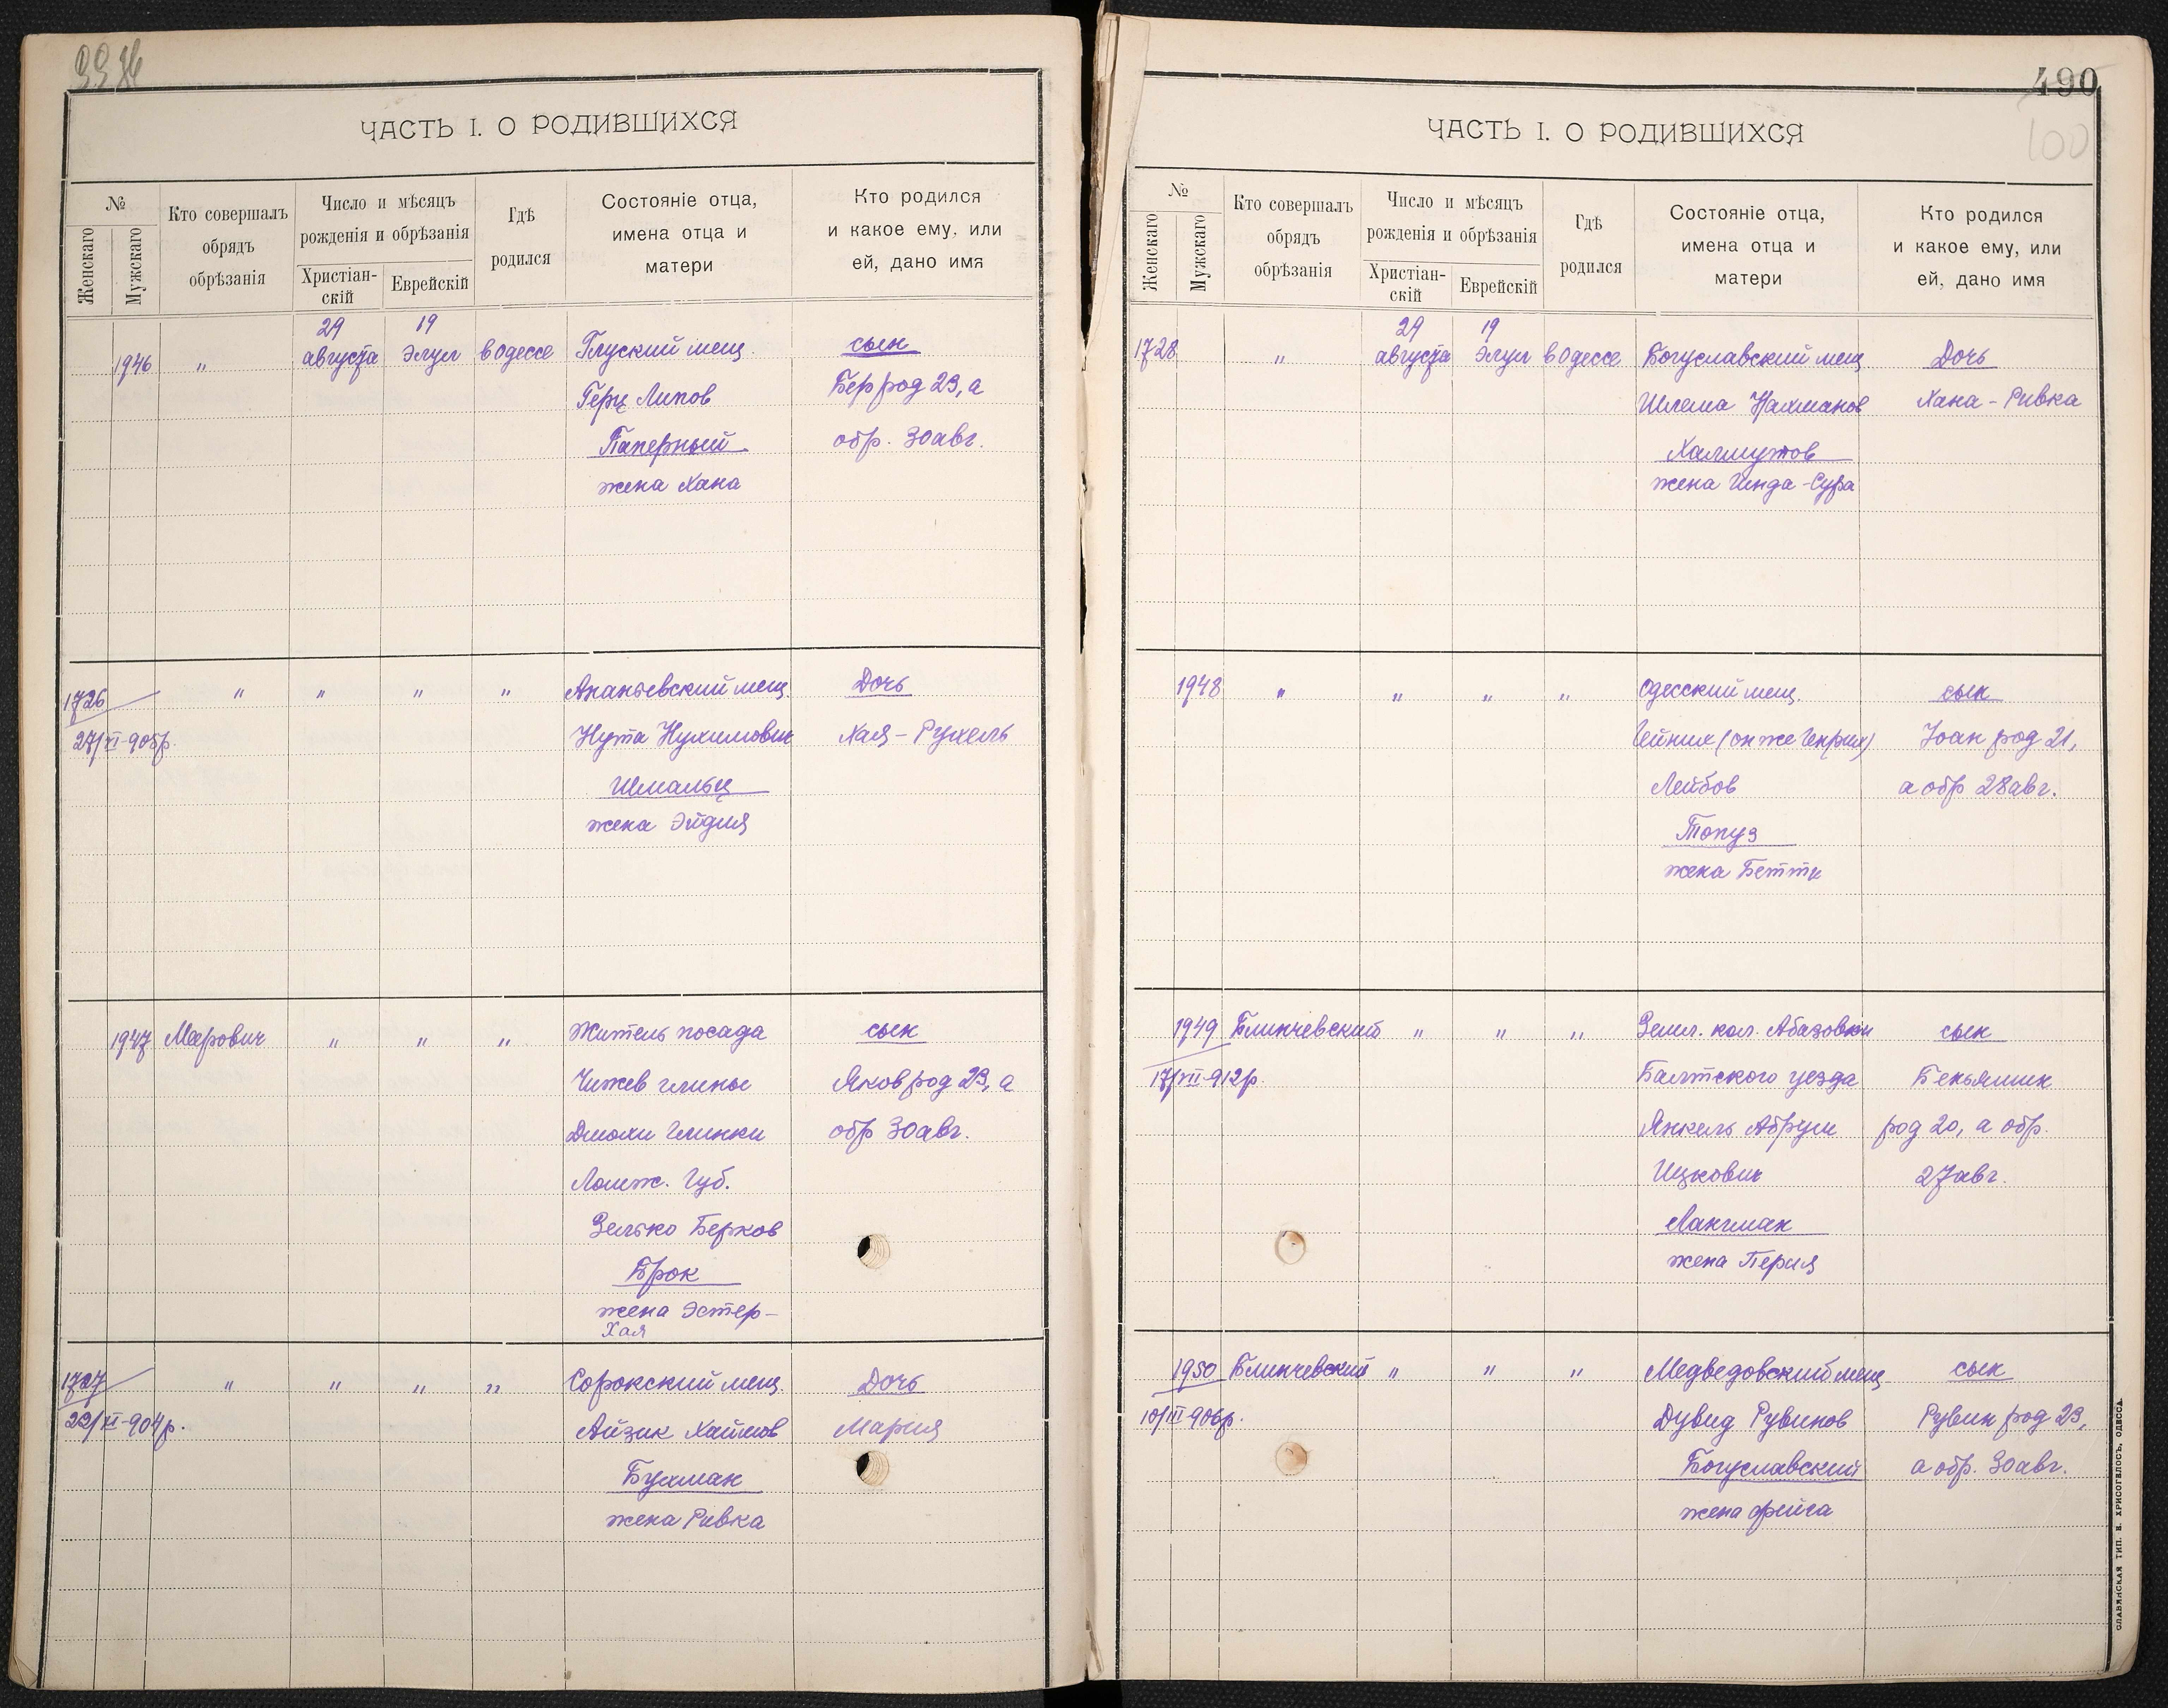 ЧАСТЬ I. О РОДИВШИХСЯ
№
Женскаго
Мужскаго
Кто совершалъ
обрядъ
обрѣзанія
Число и мѣсяцъ
рожденія и обрѣзанія
Христіан-
скій
Еврейскій
Гдѣ
родился
Состояніе отца,
имена отца и
матери
Кто родился
и какое ему, или
ей, дано имя
1946 " 29 августа 19 Элул в Одессе Глуский мещ. сын
Герц Липов Бер род 23, а
Паперный обр. 30 авг.
жена Хана
1726 " " " " Ананьевский мещ. Дочь
27/XI-905р. Нута Нухимович Хая-Рухель
Шмальц
жена Эйдля
1947 Меерович " " " Житель посада сын
Чижев Яков род 23, а
обр 30 авг.
Ломж. Губ.
Зелько Берков
Брок
жена Эстер-
Хая
1727 " " " " Сорокский мещ. Дочь
22/XI-904р. Айзик Хаимов Мария
Бухман
жена Ривка
490
100
ЧАСТЬ I. О РОДИВШИХСЯ
№
Женскаго
Мужскаго
Кто совершалъ
обрядъ
обрѣзанія
Число и мѣсяцъ
рожденія и обрѣзанія
Христіан-
скій
Еврейскій
Гдѣ
родился
Состояніе отца,
имена отца и
матери
Кто родился
и какое ему, или
ей, дано имя
1728 " 29 августа 19 Элул в Одессе Богуславский мещ. Дочь
Шлема Нахманов Хана-Ривка
жена Гинда-Сура
1948 " " " " Одесский мещ. сын
Гейних (он же Генрих) Иоан род 21,
Лейбов а обр 28 авг.
Топуз
жена Бетти
1949 Блинчевский " " " Земл. кол. Абазовки сын
17/VII-912р. Балтского уезда Беньямин
Янкель Абрум род 20, а обр.
Ицкович 27 авг.
Лангман
жена Перля
1950 Блинчевский " " " Медведовский мещ. сын
10/III-906р. Дувид Рувинов Рувин род 23,
Богуславский а обр. 30 авг.
жена Фейга
СЛАВЯНСКАЯ ТИП. Н. ХРИСОГЕЛОСЪ, ОДЕССА.